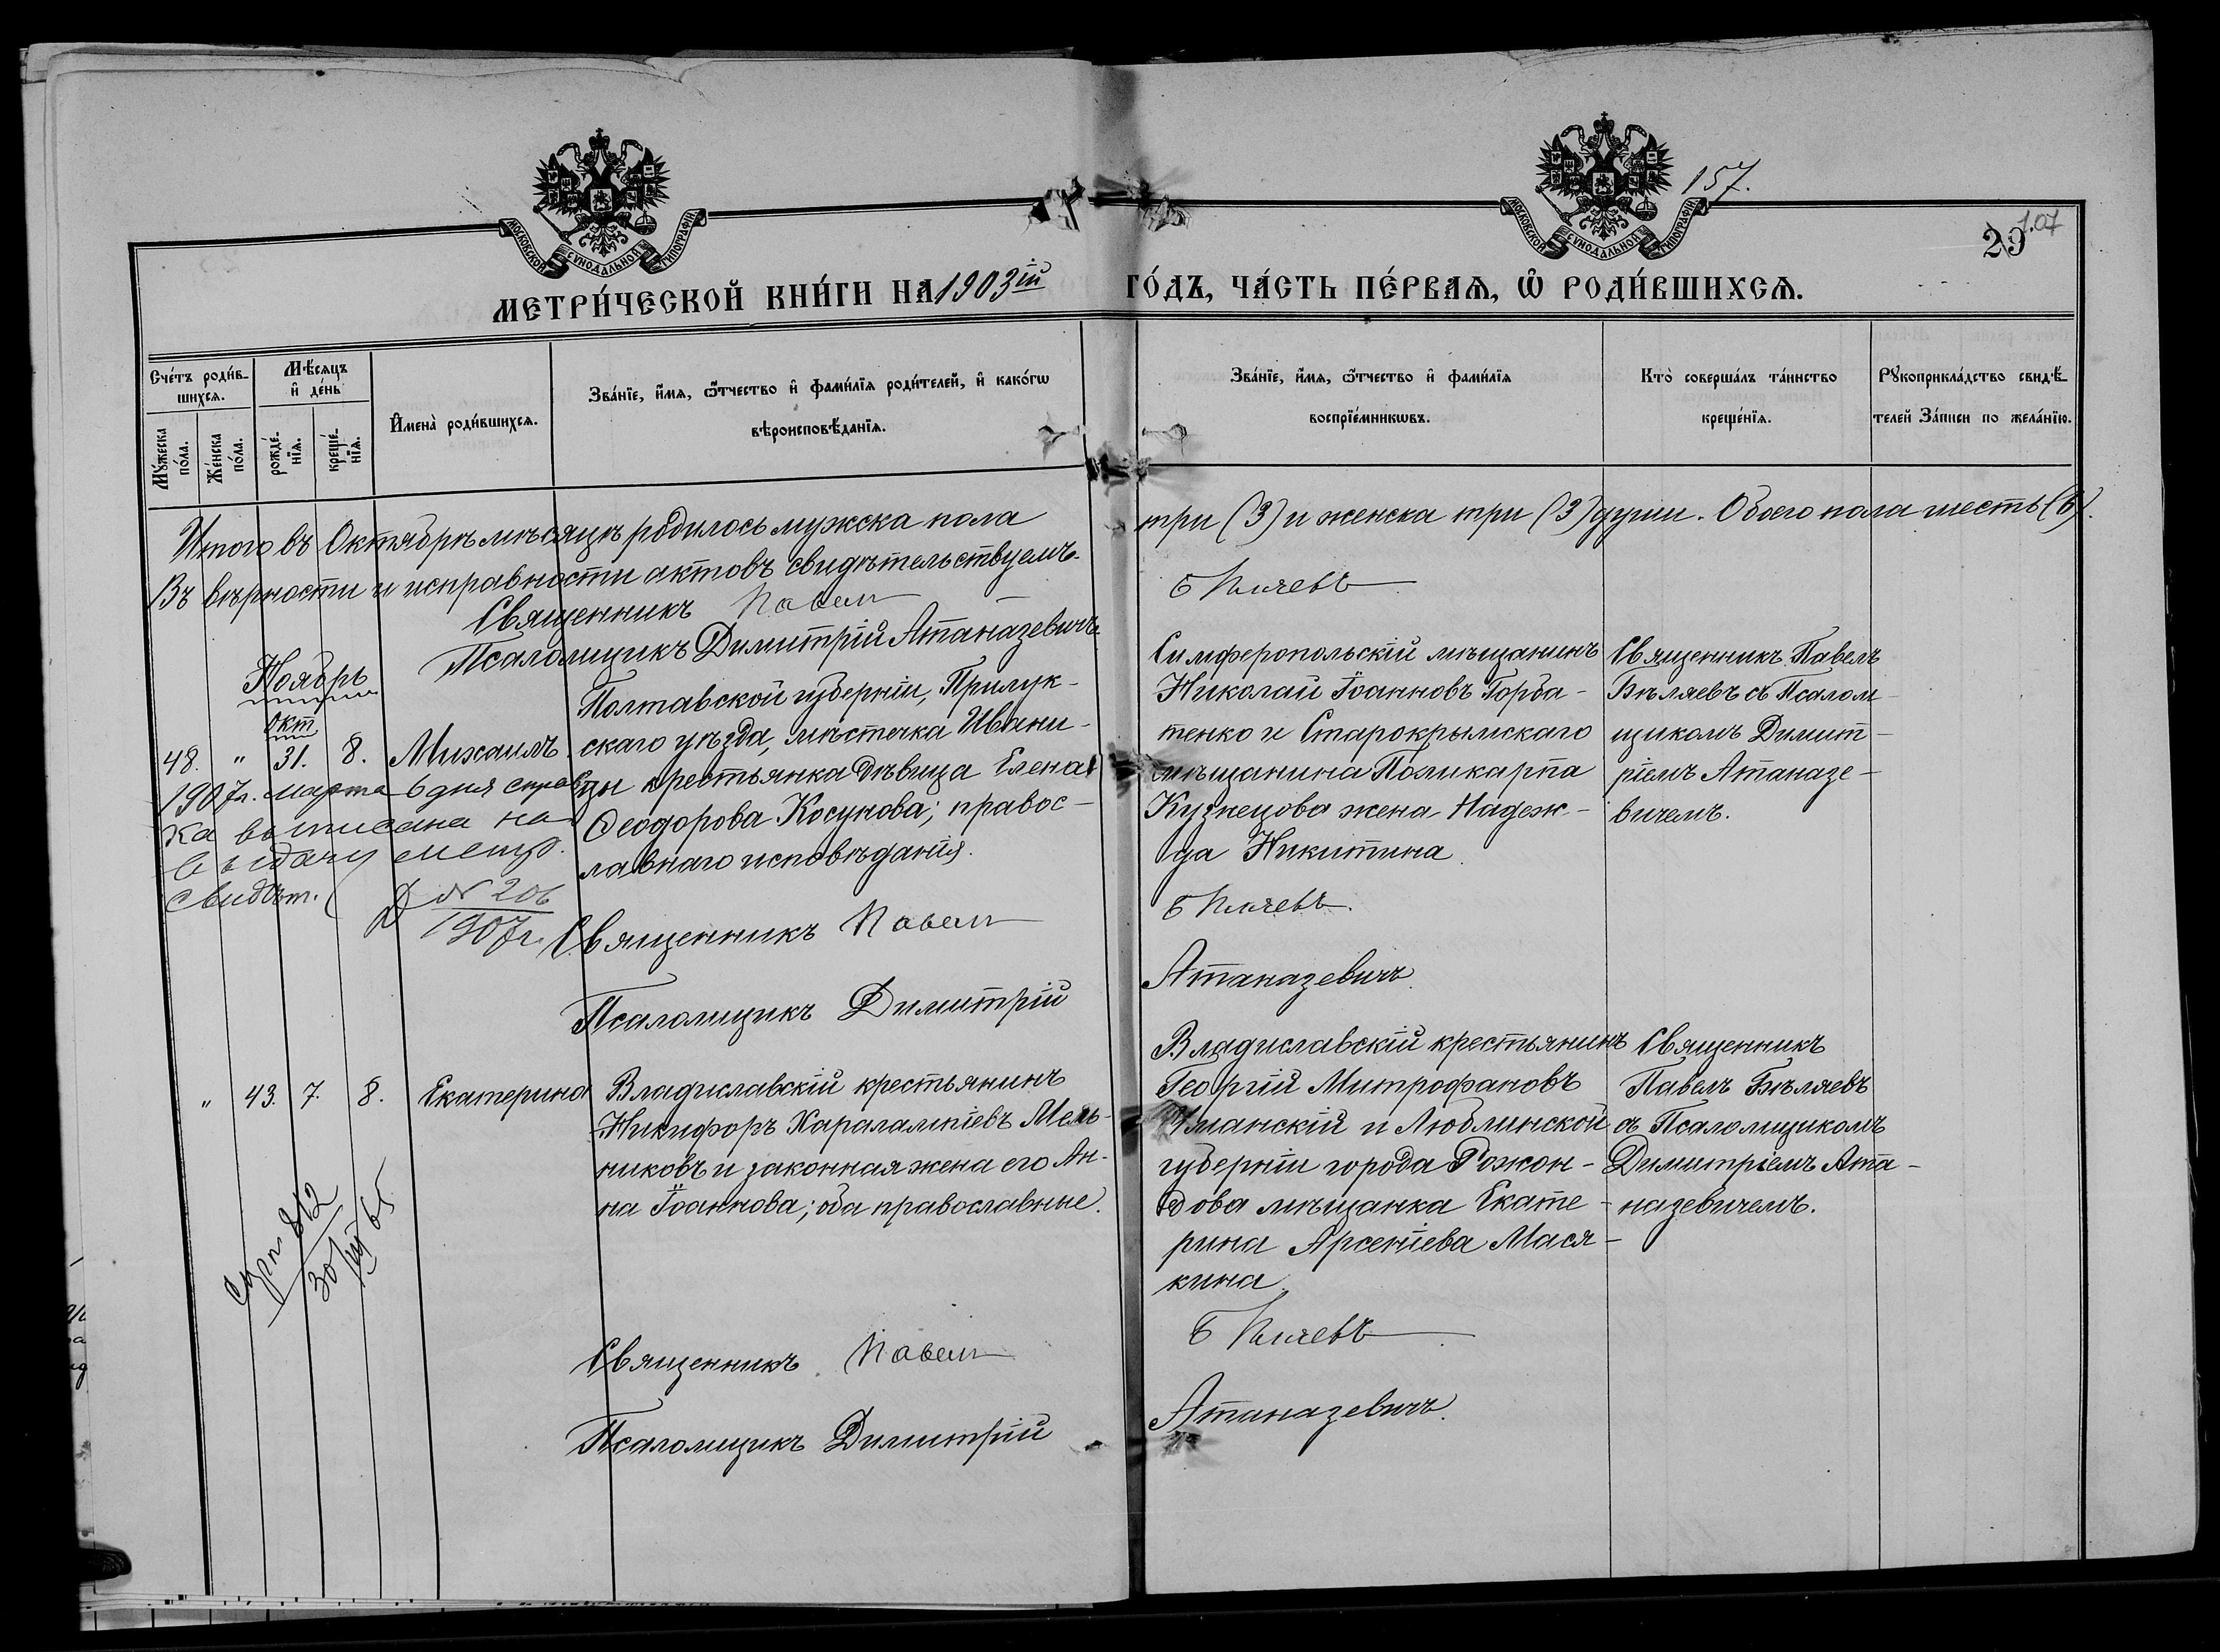 МОСКОВСКОЙ СѴНОДАЛЬНОЙ ТИПОГРАФІИ
МОСКОВСКОЙ СѴНОДАЛЬНОЙ ТИПОГРАФІИ
157.
29
107
МЕТРИ́ЧЕСКОЙ КНИ́ГИ НА 1903ій ГО́ДЪ, ЧА́СТЬ ПЕ́РВАѦ, Ѡ҆ РОДИ́ВШИХСѦ.
Сче́тъ роди́в-
шихсѧ.
Мꙋ́жеска
по́ла.
Же́нска
по́ла.
Мѣ́сѧцъ
и҆ де́нь
рожде́-
нїѧ.
креще́-
нїѧ.
И҆мена̀ роди́вшихсѧ.
Зва́нїе, и҆́мѧ, ѻ҆́тчество и҆ фами́лїѧ роди́телей, и҆ како́гѡ
вѣроисповѣ́данїѧ.
Зва́нїе, и҆́мѧ, ѻ҆́тчество и҆ фами́лїѧ
воспрїе́мникѡвъ.
Кто̀ соверша́лъ та́инство
креще́нїѧ.
Рꙋкоприкла́дство свидѣ́-
телей за́писи по жела́нїю.
Итого въ Октябрѣ мѣсяцѣ родилось мужска пола
три (3) и женска три (3) души. Обоего пола шесть (6).
Въ вѣрности и исправности актовъ свидѣтельствуемъ.
Священникъ Павелъ
Бѣляевъ
Псаломщикъ Димитрій Атаназевичъ
Ноябрь
Окт
48. " 31. 8. Михаилъ.
Полтавской губерніи, Прилук-
скаго уѣзда, мѣстечка Ивани-
цы крестьянка дѣвица Елена
Ѳеодорова Косунова; правос-
лавнаго исповѣданія.
Симферопольскій мѣщанинъ
Николай Іоанновъ Горба-
тенко и Старокрымскаго
мѣщанина Поликарпа
Кузнецова жена Надеж-
да Никитина.
Священникъ Павелъ
Бѣляевъ съ Псалом-
щикомъ Димит-
ріемъ Атаназе-
вичемъ.
1907г. марта 6 дня справ
ка выписана на
выдачу метр.
свидѣт.
Д № 206
1907г.
Священникъ Павелъ
Бѣляевъ
Псаломщикъ Димитрій
Атаназевичъ.
" 43. 7. 8. Екатерина
Владиславскій крестьянинъ
Никифоръ Харалампіевъ Мель-
никовъ и законная жена его Ан-
на Іоаннова; оба православные.
Владиславскій крестьянинъ
Георгій Митрофановъ
Уманскій и Люблинской
губерніи города Рожон-
дова мѣщанка Екате-
рина Арсеніева Мася-
кина.
Священникъ
Павелъ Бѣляевъ
съ Псаломщикомъ
Димитріемъ Ата-
назевичемъ.
812
30/III 65
Священникъ Павелъ
Бѣляевъ
Псаломщикъ Димитрій
Атаназевичъ.